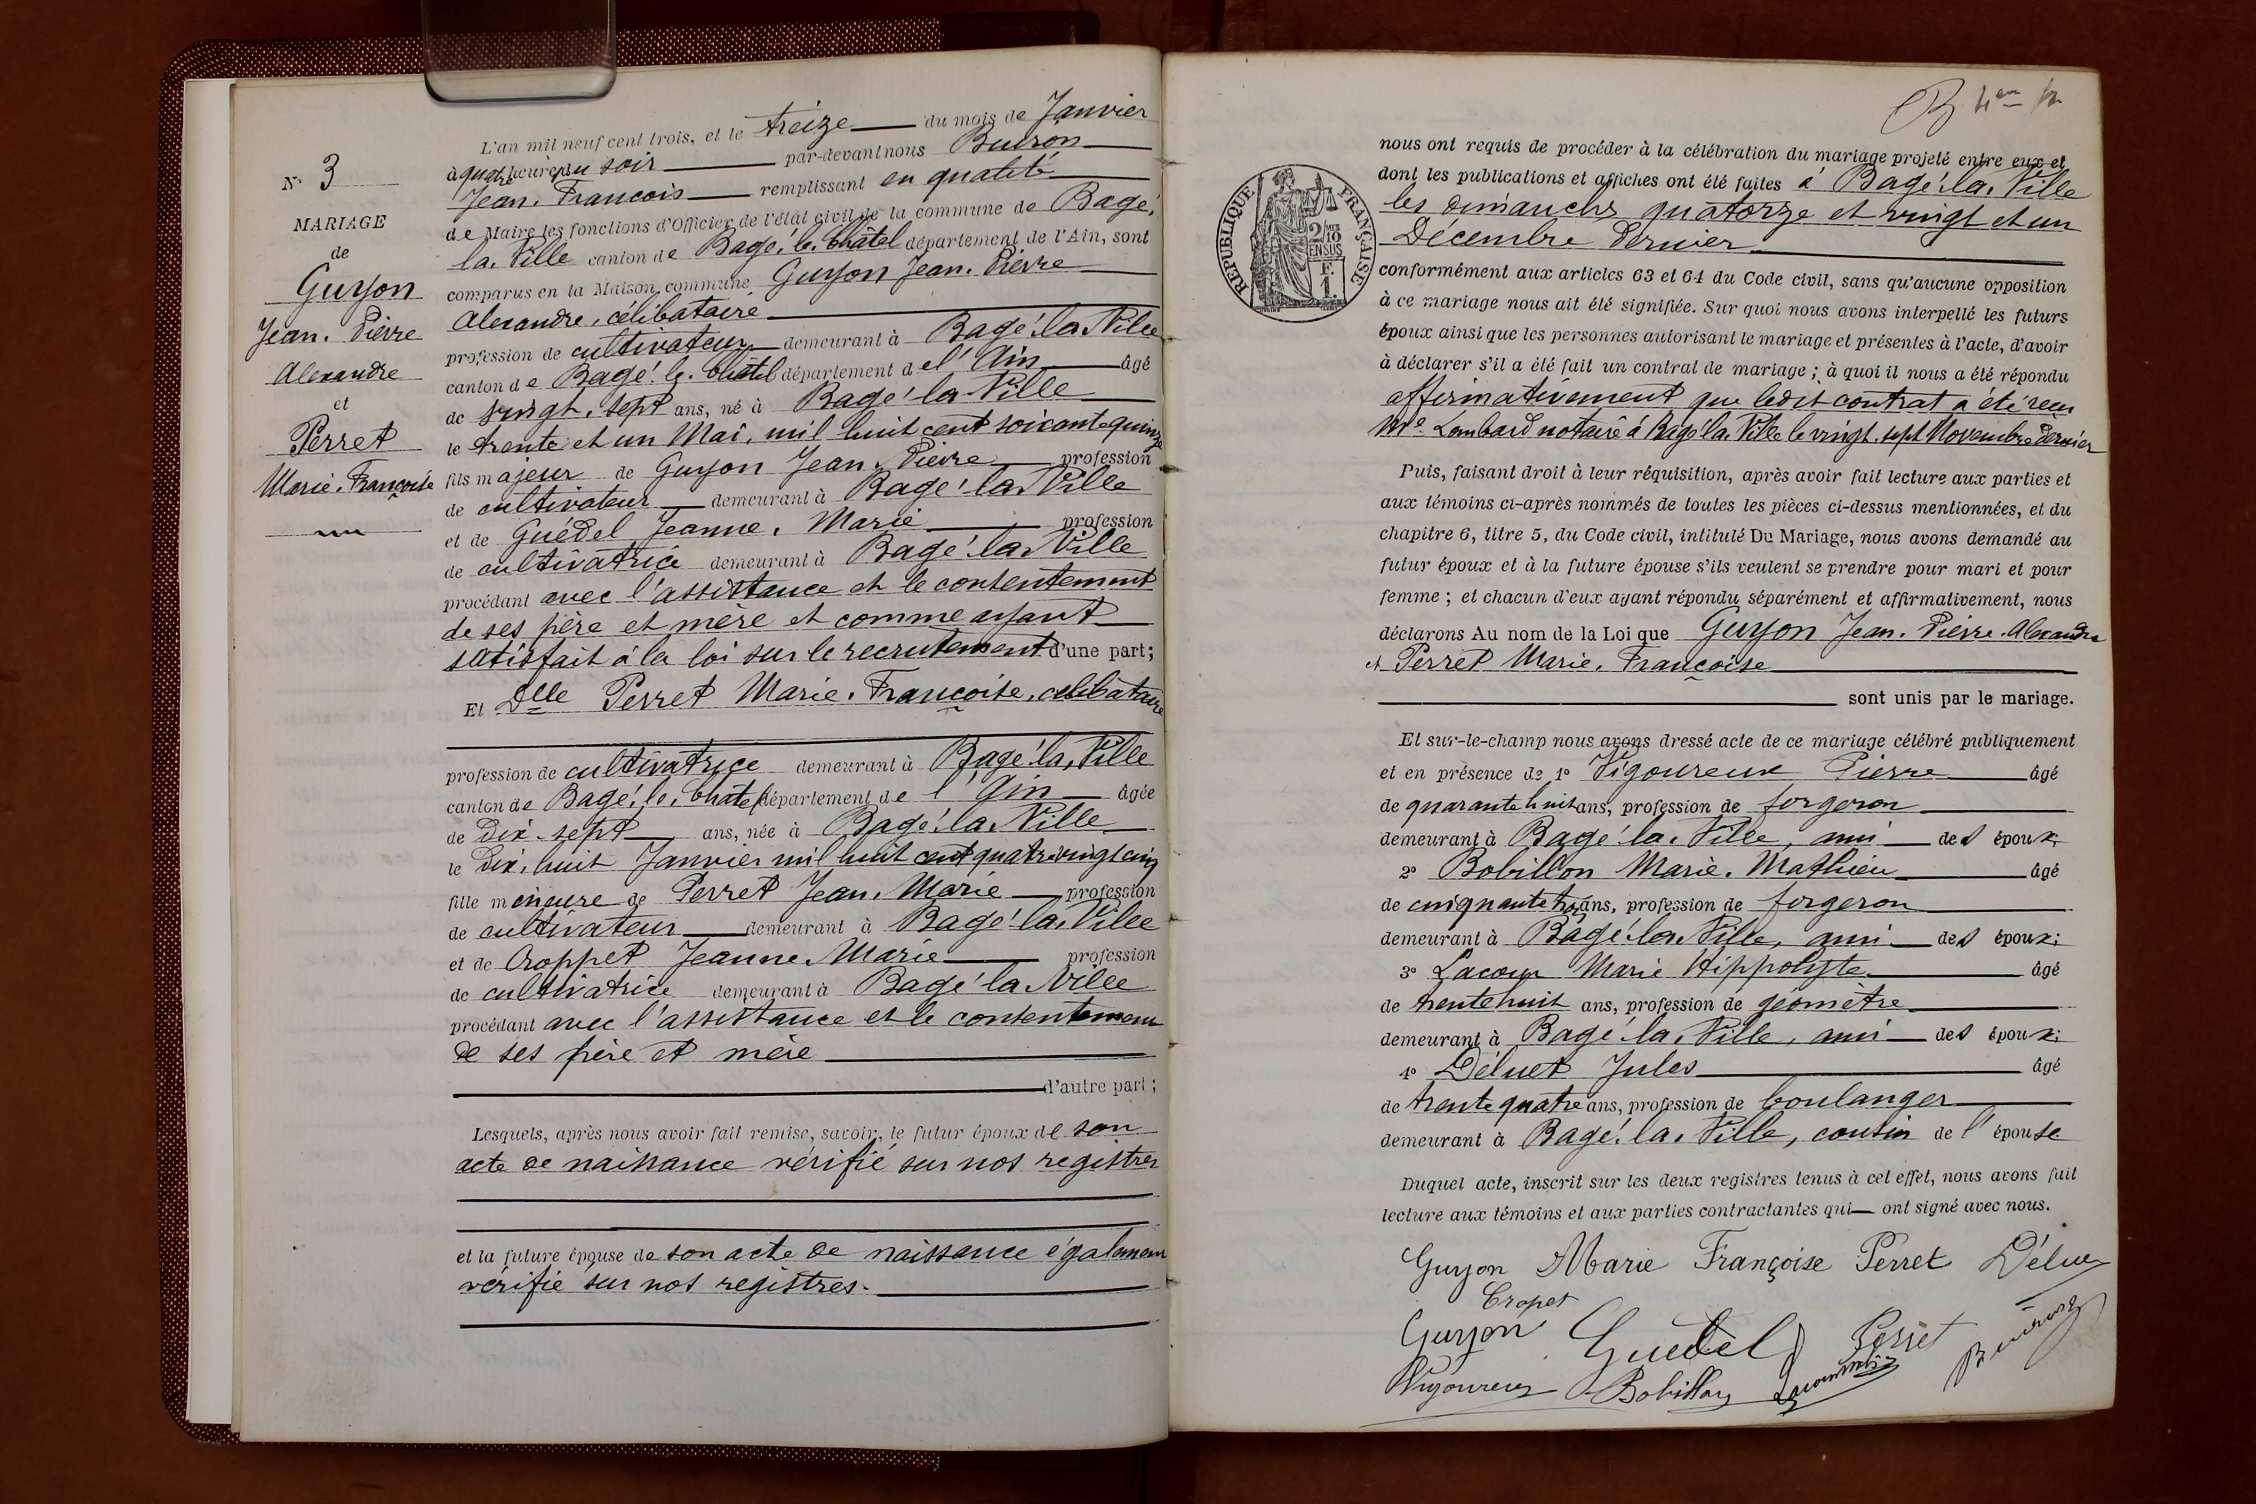 L'an mil neuf cent trois, et le treize du mois de Janvier
à quatre heure du soir par-devant nous Buiron
Jean. Francois remplissant en qualité
de Maire les fonctions d'Officier de l'état civil de la commune de Bagé.
la. Ville canton de Bagé. le. Châtel département de l'Ain, sont
comparus en la Maison commune Guyon Jean. Pierre
Alexandre, célibataire
profession de cultivateur demeurant à Bagé. la Ville
canton de Bagé. le. Châtel département de l'Ain âgé
de vingt. sept ans, né à Bagé la Ville
le trente et un Mai, mil huit cent soixante quinze
fils majeur de Guyon Jean. Pierre profession
de cultivateur demeurant à Bagé la Ville
et de Guédel Jeanne. Marie profession
de cultivatrice demeurant à Bagé la Ville
procédant avec l'assistance et le consentement
de ses père et mère et comme ayant
satisfait à la loi sur le recrutement d'une part;
Et Dlle Perret Marie. Françoise, célibataire
profession de cultivatrice demeurant à Bagé. la. Ville
canton de Bagé. le. Châtel département de l'Ain âgée
de Dix-sept ans, née à Bagé. la. Ville
le Dix. huit Janvier mil huit cent quatre vingt cinq
fille mineure de Perret Jean. Marie profession
de cultivateur demeurant à Bagé. la. Ville
et de Croppet Jeanne. Marie profession
de cultivatrice demeurant à Bagé la Ville
procédant avec l'assistance et le consentement
de ses père et mère
d'autre part;
Lesquels, après nous avoir fait remise, savoir, le futur époux de son
acte de naissance vérifié sur nos registres
et la future épouse de son acte de naissance également
vérifié sur nos registres.
N° 3
MARIAGE
de
Guyon
Jean. Pierre
Alexandre
et
Perret
Marie. Françoise
nous ont requis de procéder à la célébration du mariage projeté entre eux et
dont les publications et affiches ont été faites à Bagé. la. Ville
les dimanches quatorze et vingt et un
Décembre Dernier
REPUBLIQUE FRANÇAISE
2/10
EN SUS
F.
1.
conformément aux articles 63 et 64 du Code civil, sans qu'aucune opposition
à ce mariage nous ait été signifiée. Sur quoi nous avons interpellé les futurs
époux ainsi que les personnes autorisant le mariage et présentes à l'acte, d'avoir
à déclarer s'il a été fait un contrat de mariage; à quoi il nous a été répondu
affirmativement que ledit contrat a été reçu
Me. Lombard notaire à Bagé la. Ville le vingt. sept Novembre Dernier
Puis, faisant droit à leur réquisition, après avoir fait lecture aux parties et
aux témoins ci-après nommés de toutes les pièces ci-dessus mentionnées, et du
chapitre 6, titre 5, du Code civil, intitulé Du Mariage, nous avons demandé au
futur époux et à la future épouse s'ils veulent se prendre pour mari et pour
femme; et chacun d'eux ayant répondu séparément et affirmativement, nous
déclarons Au nom de la Loi que Guyon Jean. Pierre. Alexandre
et Perret Marie. Françoise
sont unis par le mariage.
Et sur-le-champ nous avons dressé acte de ce mariage célébré publiquement
et en présence de 1° Vigoureux Pierre âgé
de quarante huit ans, profession de forgeron
demeurant à Bagé. la. Ville, ami des époux;
2° Bobillon Marie. Mathieu âgé
de cinquante trois ans, profession de forgeron
demeurant à Bagé. la. Ville, ami des époux;
3° Lacour Marie Hippolyte âgé
de trente huit ans, profession de géomètre
demeurant à Bagé la. Ville, ami des époux;
4° Déluet Jules âgé
de trente quatre ans, profession de boulanger
demeurant à Bagé. la. Ville, cousin de l'épouse
Duquel acte, inscrit sur les deux registres tenus à cet effet, nous avons fait
lecture aux témoins et aux parties contractantes qui ont signé avec nous.
Guyon Marie Françoise Perret Déluet
Cropet
Guyon Guedel Perret Buiron
Vigoureux Bobillon